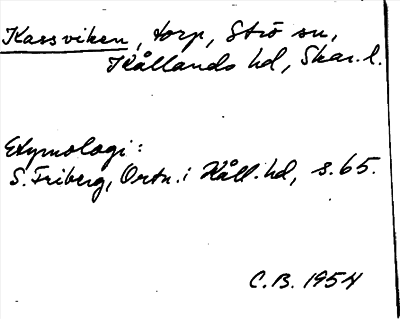 Kassviken, torp, Strö sn,
Kållands hd, Skar. l.
Etymologi:
S. Friberg, Ortn. i Kåll. hd, s. 65.
C.B. 1954